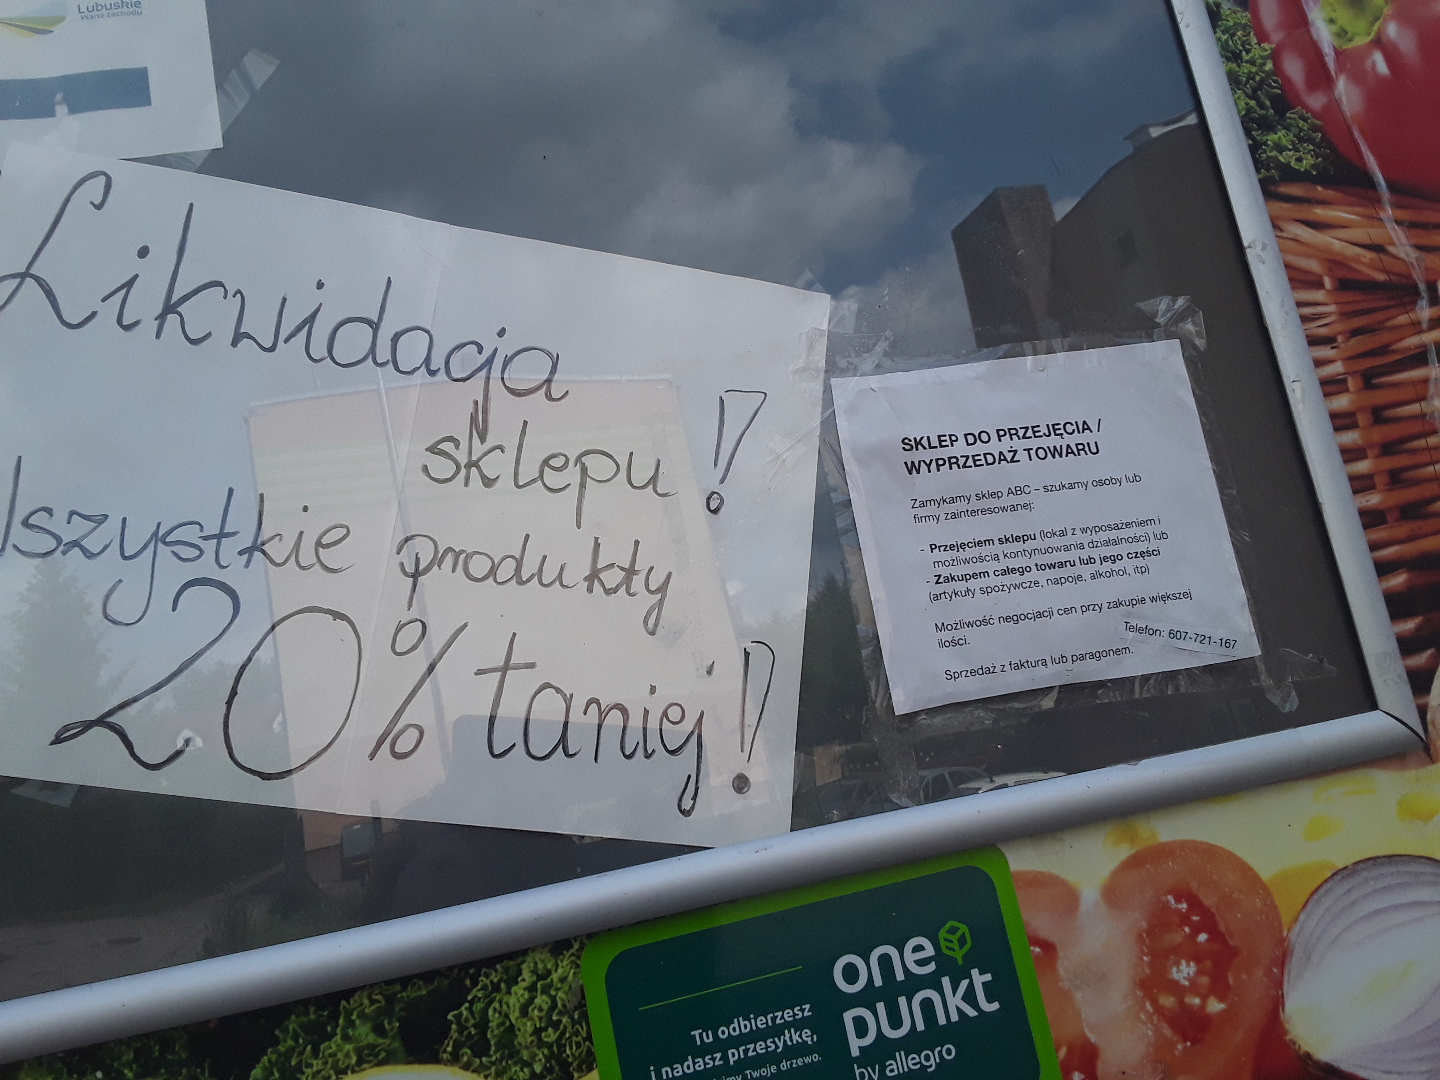 Lubuskie
Warte zachodu
Likwidacja
sklepu!
Wszystkie produkty
20% taniej!
SKLEP DO PRZEJĘCIA /
WYPRZEDAŻ TOWARU
Zamykamy sklep ABC – szukamy osoby lub
firmy zainteresowanej:
- Przejęciem sklepu (lokal z wyposażeniem i
możliwością kontynuowania działalności) lub
- Zakupem całego towaru lub jego części
(artykuły spożywcze, napoje, alkohol, itp)
Możliwość negocjacji cen przy zakupie większej
ilości.
Telefon: 607-721-167
Sprzedaż z fakturą lub paragonem.
one
punkt
by allegro
Tu odbierzesz
i nadasz przesyłkę,
Twoje drzewo.